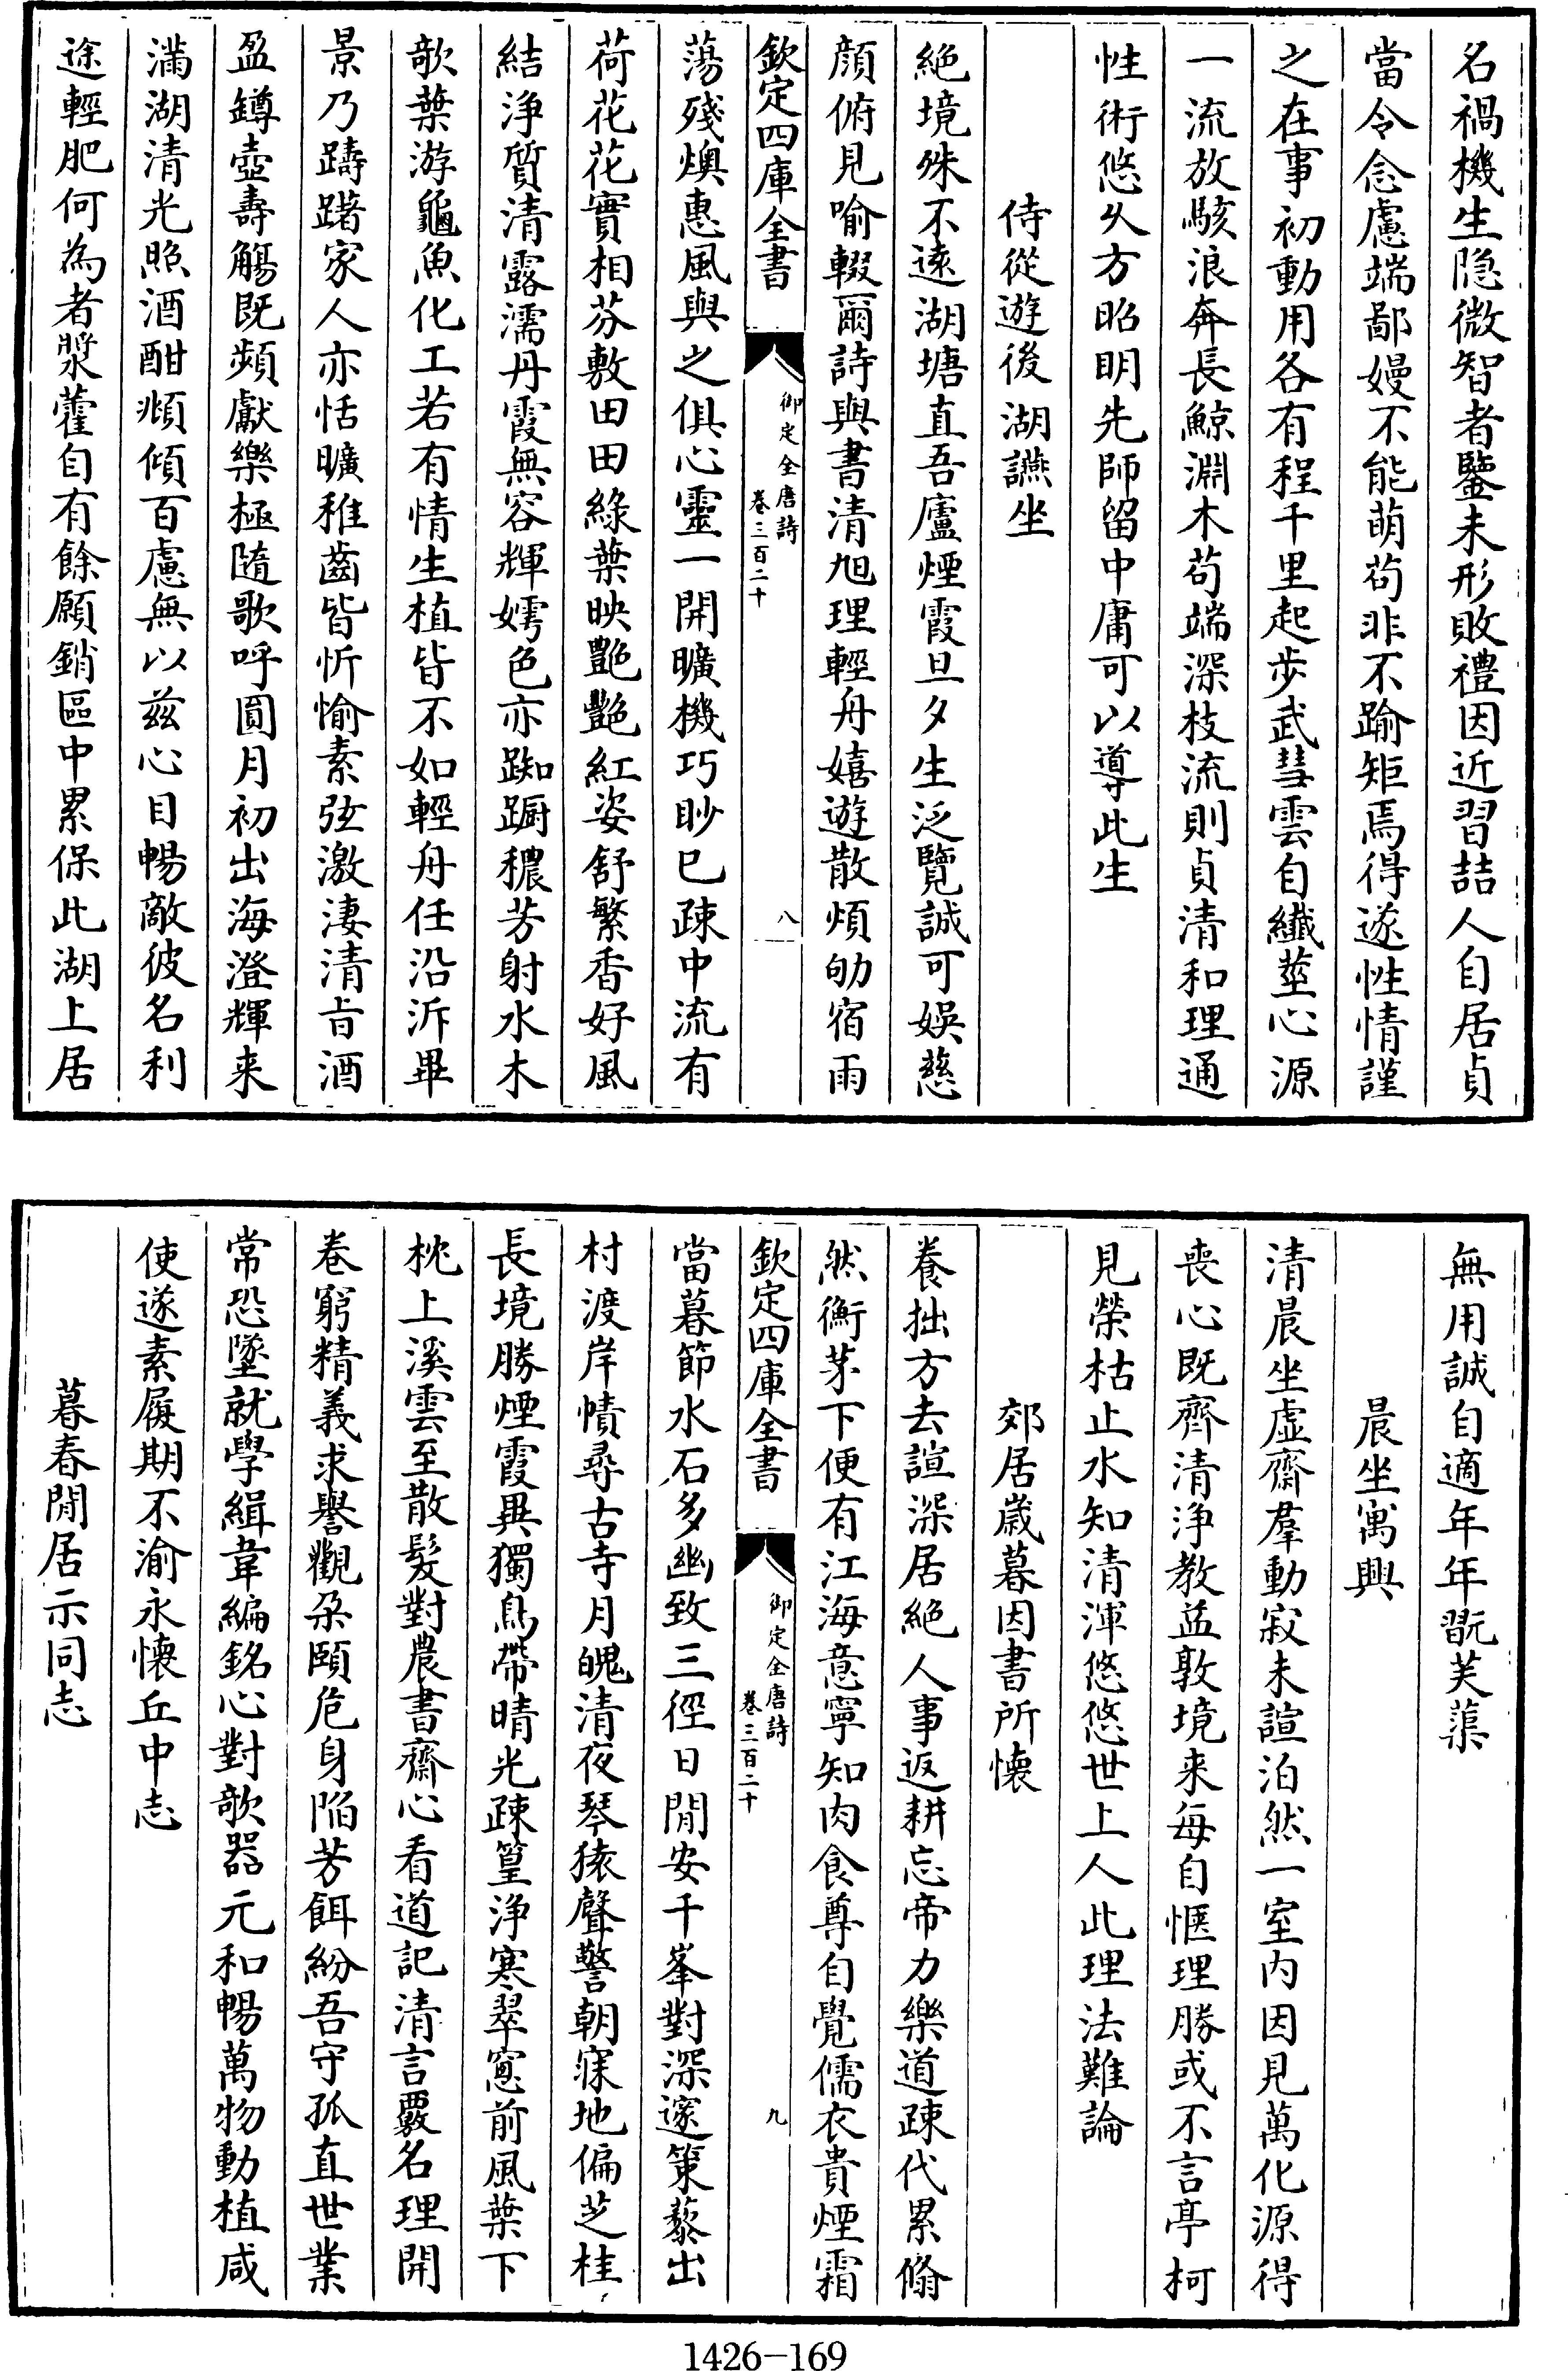 名禍機生隐微智者鑒未形敗禮因近習喆人自居貞
當令念慮端鄙嫚不能萌苟非不踰矩焉得遂性情謹
之在事初動用各有程千里起步武彗雲自纖莖心源
一流放駭浪奔長鯨淵木苟端深枝流則貞清和理通
性術悠久方昭明先師留中庸可以導此生
侍從遊後湖讌坐
絕境殊不遠湖塘直吾廬煙霞旦夕生泛覽誠可娛慈
顔俯見喻輟爾詩與書清旭理輕舟嬉遊散煩劬宿雨
欽定四庫全書
御定全唐詩
卷三百二十
八
蕩殘燠惠風與之俱心靈一開曠機巧眇已疎中流有
荷花花實相芬敷田田綠葉映艷艷紅姿舒繁香好風
結浄質清露濡丹霞無容輝嫮色亦踟蹰穠芳射水木
欹葉游龜魚化工若有情生植皆不如輕舟任沿泝畢
景乃躊躇家人亦恬曠稚齒皆忻愉素弦激淒清旨酒
盈罇壺壽觴既頻獻樂極隨歌呼圓月初出海澄輝来
滿湖清光照酒酣頫傾百慮無以兹心目暢敵彼名利
途輕肥何為者漿藿自有餘願銷區中累保此湖上居
無用誠自適年年翫芙蕖
晨坐寓興
清晨坐虛齋羣動寂未諠泊然一室内因見萬化源得
喪心既齊清浄教益敦境来每自愜理勝或不言亭柯
見榮枯止水知清渾悠悠世上人此理法難論
郊居歲暮因書所懷
養拙方去諠深居絕人事返耕忘帝力樂道疎代累翛
然衡茅下便有江海意寧知肉食尊自覺儒衣貴煙霜
欽定四庫全書
御定全唐詩
卷三百二十
九
當暮節水石多幽致三徑日閒安千峯對深邃策藜出
村渡岸幘尋古寺月魄清夜琴猿聲警朝寐地偏芝桂
長境勝煙霞異獨鳥帶晴光疎篁浄寒翠窻前風葉下
枕上溪雲至散髮對農書齋心看道記清言覈名理開
卷窮精義求譽觀朶頤危身陷芳餌紛吾守孤直世業
常恐墜就學緝韋編銘心對欹器元和暢萬物動植咸
使遂素履期不渝永懷丘中志
暮春閒居示同志
1426-169